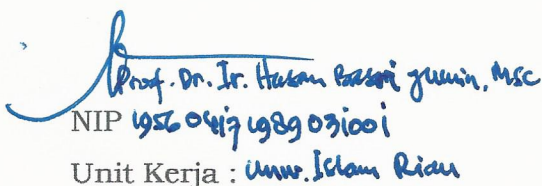 Prof. Dr. Ir. Hasan Basri Jumin, MSc
NIP 19560417 198903 1001
Unit Kerja : Univ. Islam Riau